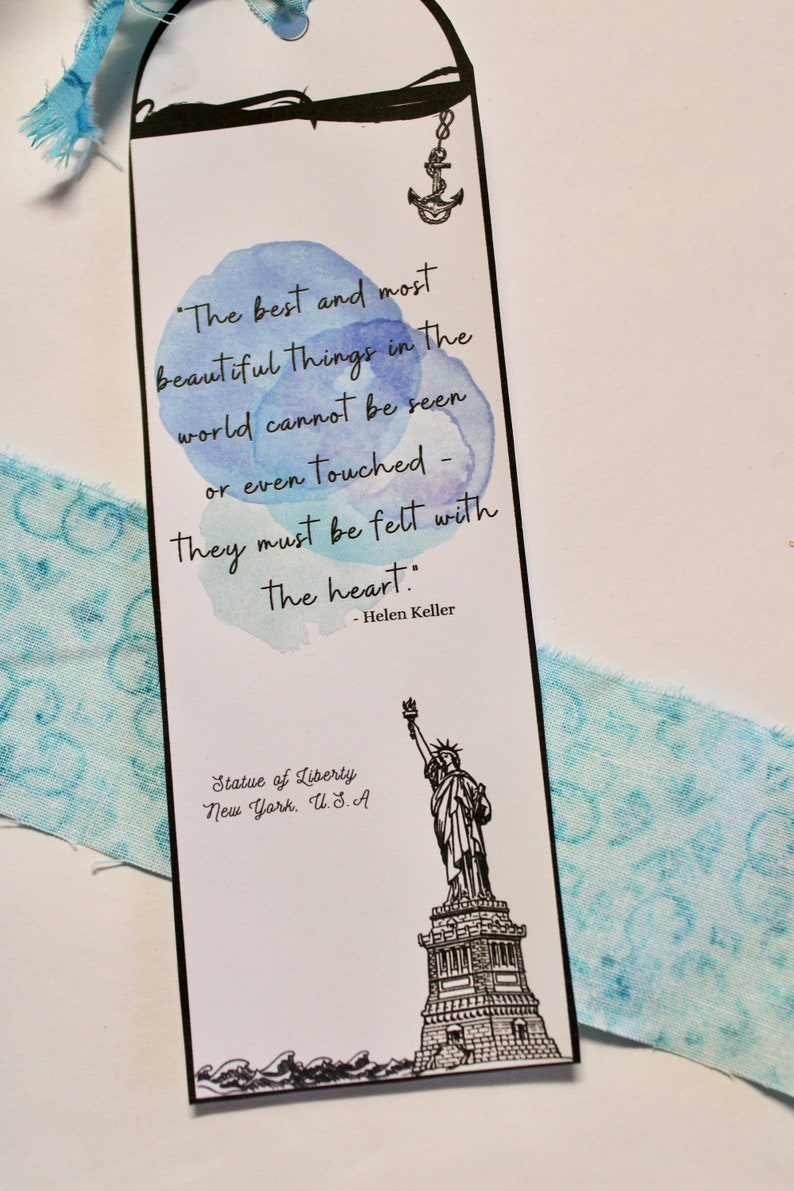 "The best and most
beautiful things in the
world cannot be seen
or even touched -
they must be felt with
the heart."
- Helen Keller
Statue of Liberty
New York, U.S.A